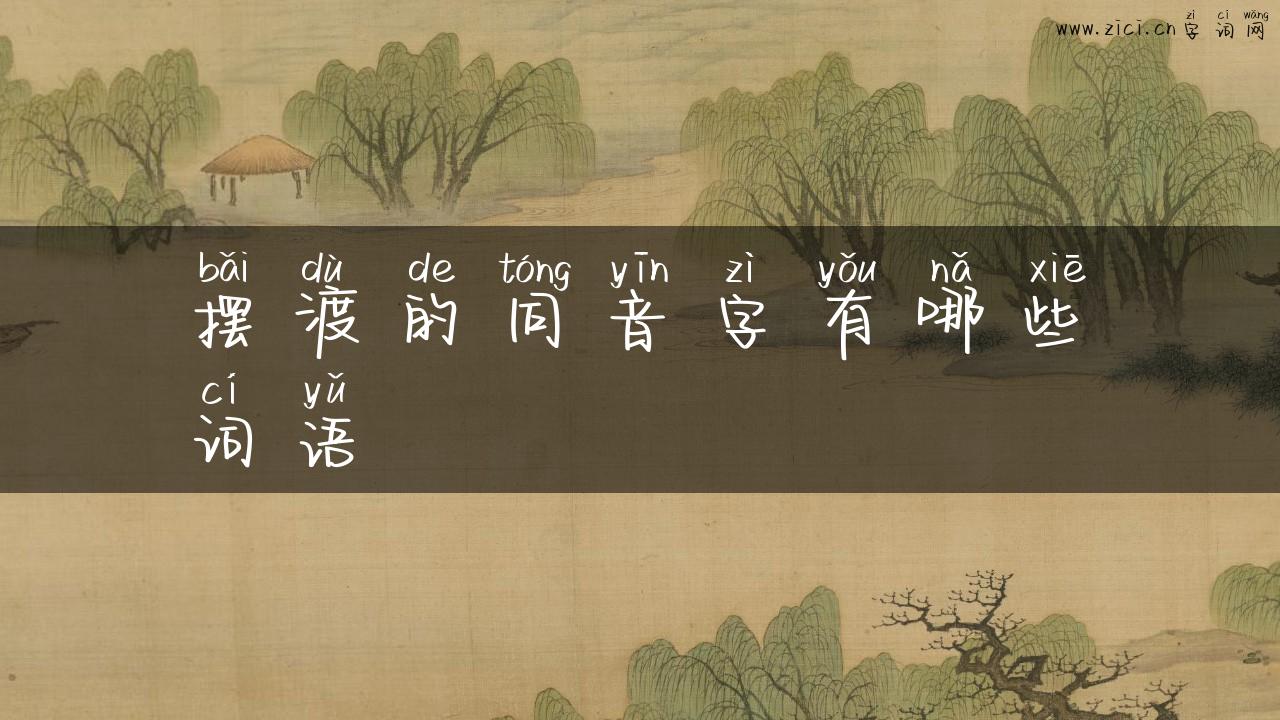 zì cí wǎng
www.zici.cn 字 词 网
bǎi dù de tóng yīn zì yǒu nǎ xiē
摆 渡 的 同 音 字 有 哪 些
cí yǔ
词 语